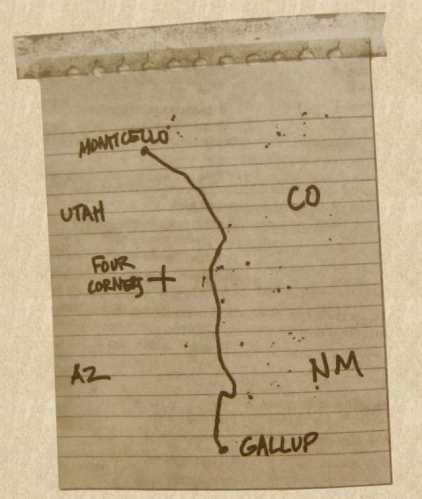 MONTICELLO
CO
UTAH
FOUR
CORNERS
AZ
NM
GALLUP